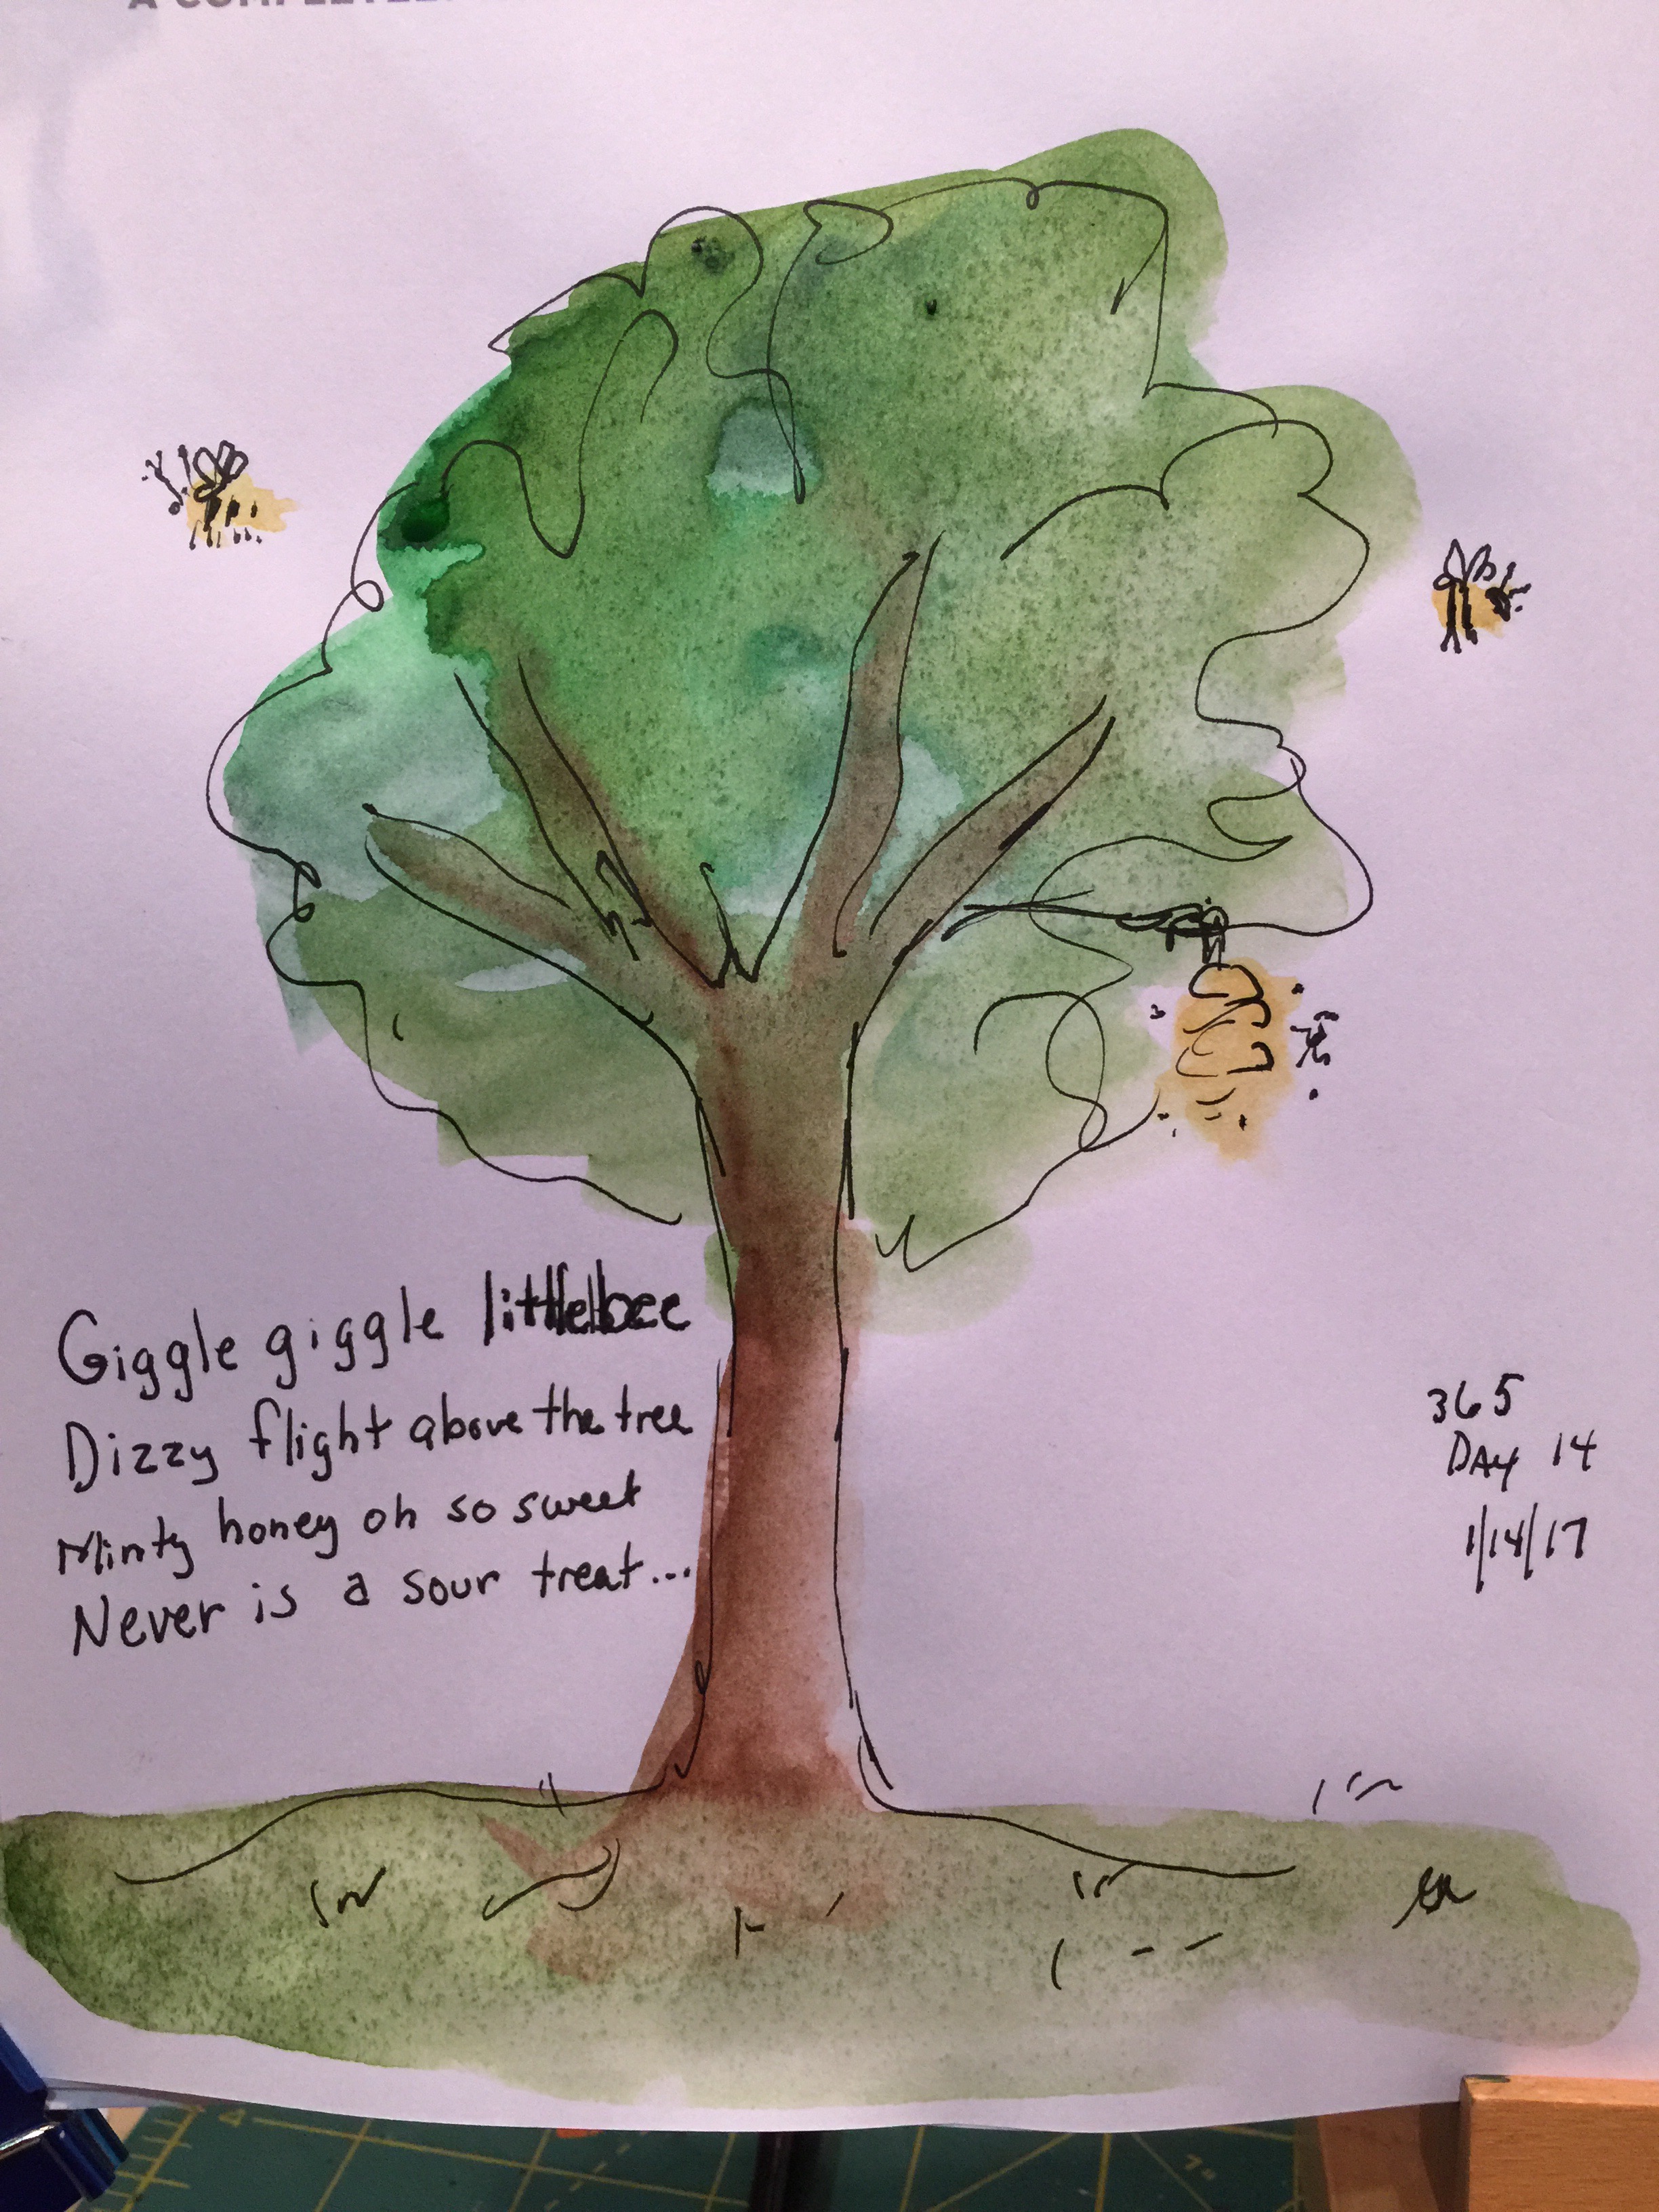 Giggle giggle little bee
Dizzy flight above the tree
Minty honey oh so sweet
Never is a sour treat...
365
DAY 14
1/14/17